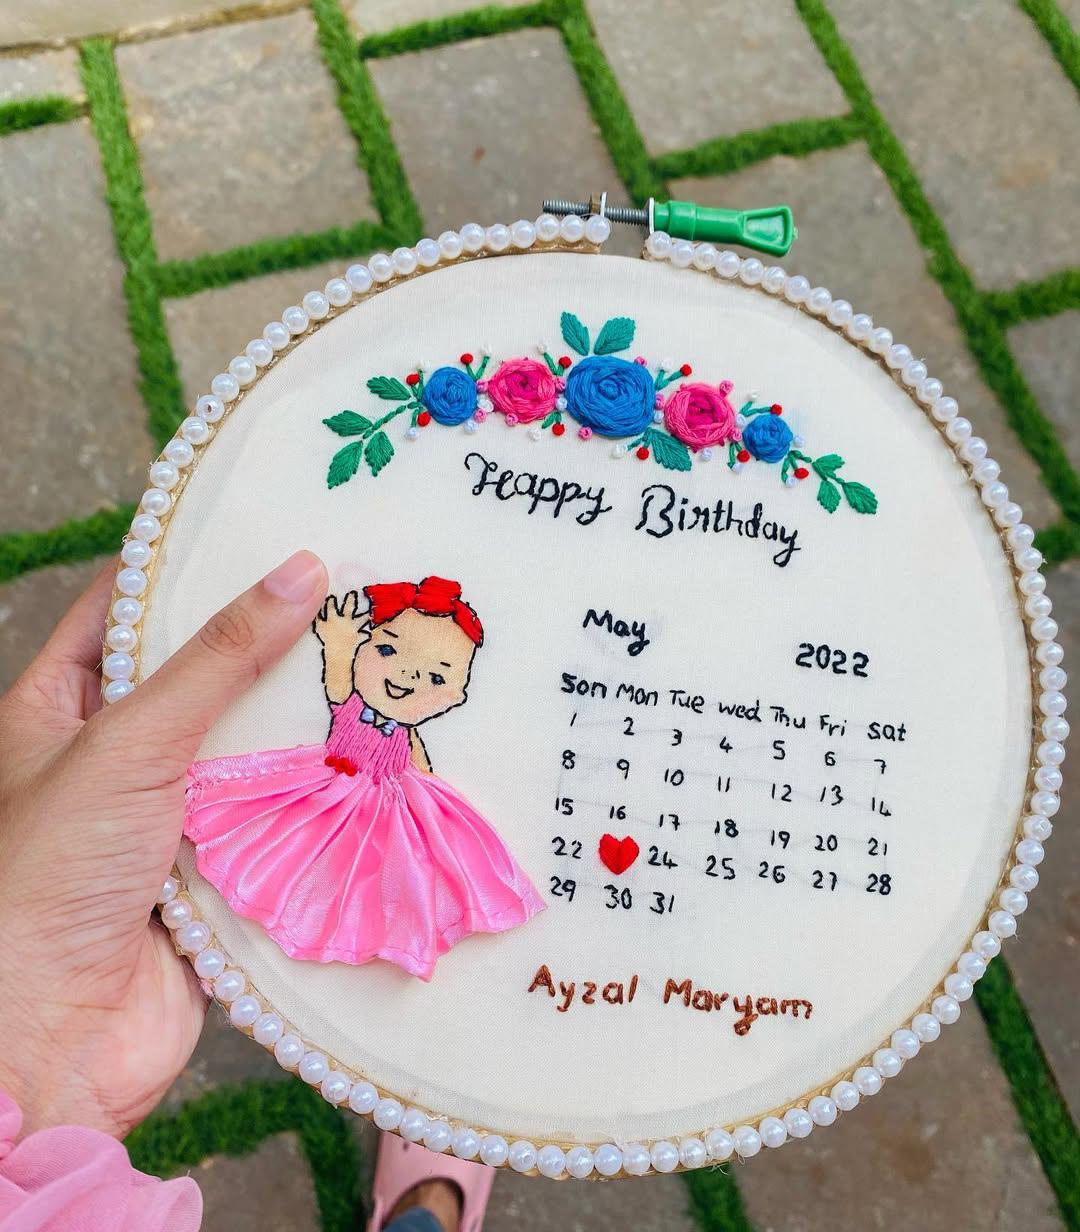 Happy Birthday
May 2022
Son Mon Tue wed Thu Fri sat
1 2 3 4 5 6 7
8 9 10 11 12 13 14
15 16 17 18 19 20 21
22 24 25 26 27 28
29 30 31
Ayzal Maryam